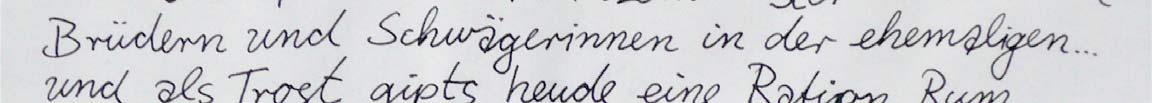 Brüdern und Schwägerinnen in der ehemaligen...
und als Trost gipts heude eine Ration Rum